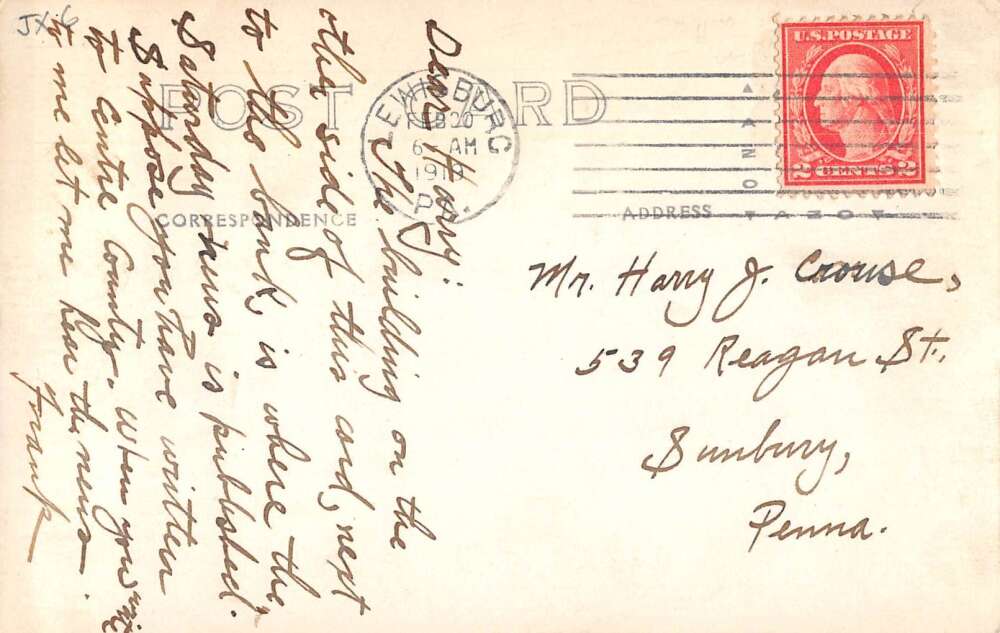 JX-6
POST CARD
LEWISBURG
FEB 20
6 - AM
1919
PA.
U.S. POSTAGE
2 CENTS 2
CORRESPONDENCE
ADDRESS
Dear Harry:
The building on the
other side of this card, next
to the bank, is where the
Saturday News is published.
Suppose you have written
to Centre County. When you write
to me let me hear the news.
Frank
Mr. Harry J. Crouse,
539 Reagan St.,
Sunbury,
Penna.